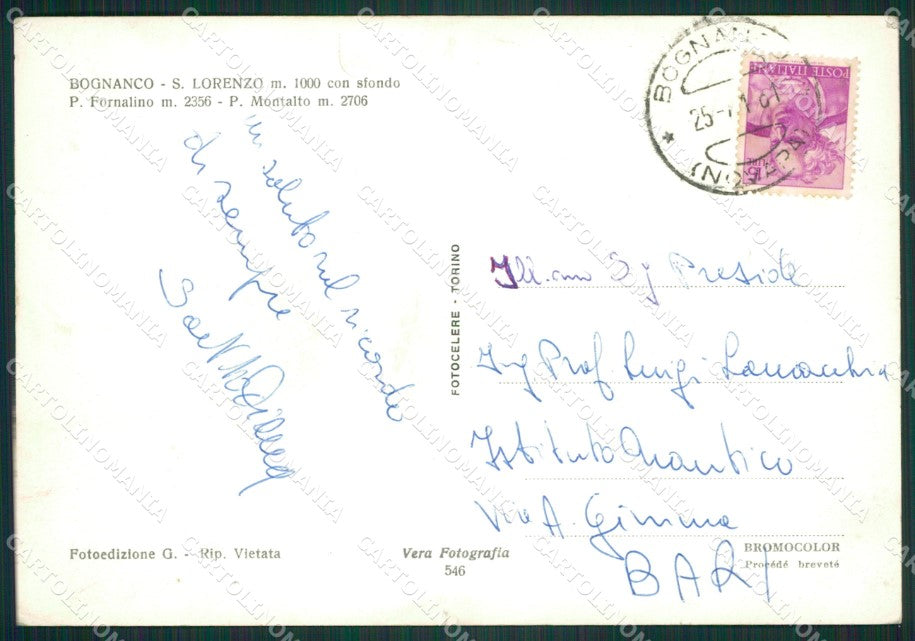 BOGNANCO - S. LORENZO m. 1000 con sfondo
P. Fornalino m. 2356 - P. Montalto m. 2706
un saluto nel ricordo
di sempre
FOTOCELERE - TORINO
BOGNANCO
(NOVARA)
POSTE ITALIANE
Ill.mo Sig Preside
Ing Prof Luigi
Istituto Nautico
Via A. Gimma
BARI
Fotoedizione G. - Rip. Vietata
Vera Fotografia
546
BROMOCOLOR
Procédé breveté
CARTOLINOMANIA